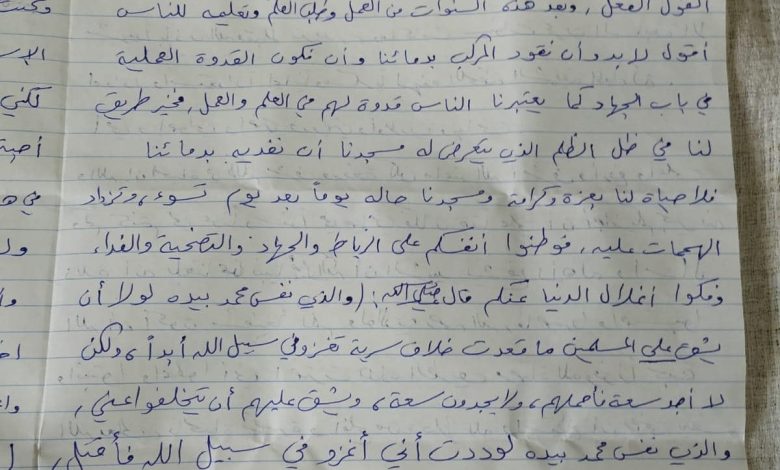 القول الفعل، وبعد هذه السنوات من العمل وطلب العلم وتعليمه للناس وكنت
أقول لا بد وأن نقود المركب بدمائنا وأن نكون القدوة العملية
في باب الجهاد كما يعتبرنا الناس قدوة لهم في العلم والعمل، فخير طريق لكني
لنا في ظل الظلم الذي يتعرض له مسجدنا أن نفديه بدمائنا
فلا حياة لنا بعزة وكرامة ومسجدنا حاله يوماً بعد يوم تسوء، وتزداد
الهجمات عليه، فوطنوا أنفسكم على الرباط والجهاد والتضحية والفداء
وفكوا أغلال الدنيا عنكم قال ﷺ: (والذي نفس محمد بيده لولا أن
يشق على المسلمين ما قعدت خلاف سرية تغزو في سبيل الله أبداً، ولكن
لا أجد سعة فأحملهم، ولا يجدون سعة، ويشق عليهم أن يتخلفوا عني،
والذي نفس محمد بيده لوددت أني أغزو في سبيل الله فأقتل،